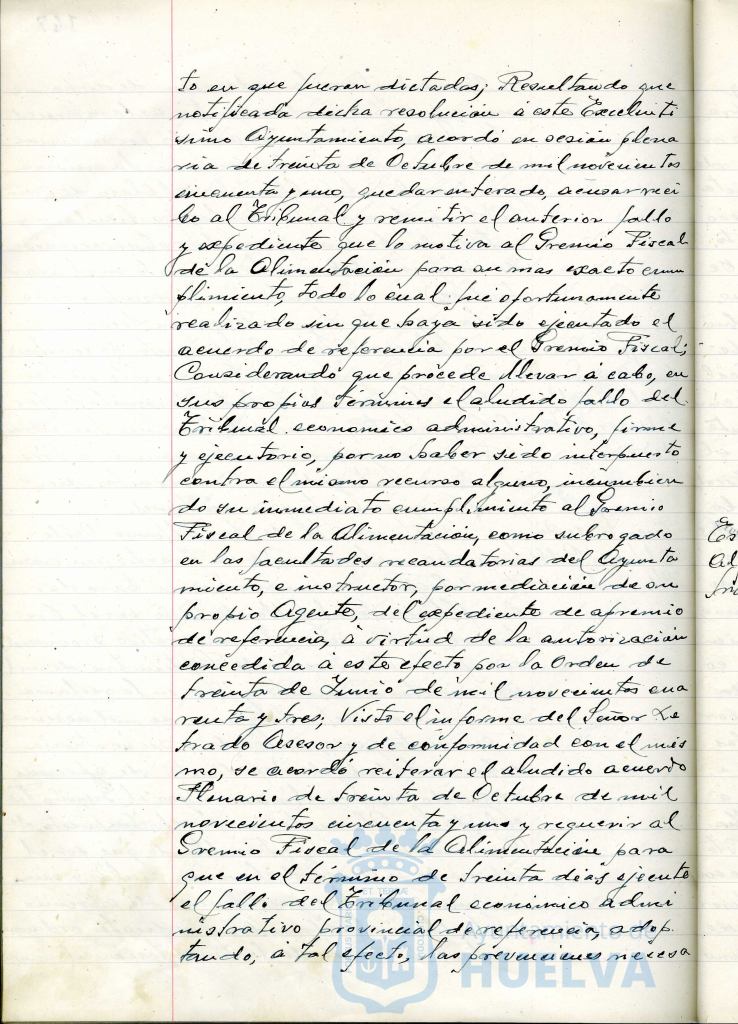 to en que fueran dictadas; Resultando que
notificada dicha resolución á este Excelentí
simo Ayuntamiento, acordó en sesión plena
ria de treinta de Octubre de mil novecientos
cincuenta y uno, quedar enterado, acusar reci
bo al Tribunal y remitir el anterior fallo
y expediente que lo motiva al Gremio Fiscal
de la Alimentación para su mas exacto cum
plimiento, todo lo cual fué oportunamente
realizado sin que haya sido ejecutado el
acuerdo de referencia por el Gremio Fiscal;
Considerando que procede llevar a cabo, en
sus propios términos el aludido fallo del
Tribunal economico administrativo, firme
y ejecutorio, por no haber sido interpuesto
contra el mismo recurso alguno, incumbien
do su inmediato cumplimiento al Gremio
Fiscal de la Alimentación, como subrogado
en las facultades recaudatorias del Ayunta
miento, e instructor, por mediación de su
propio Agente, del expediente de apremio
de referencia, á virtud de la autorización
concedida á este efecto por la Orden de
treinta de Junio de mil novecientos cua
renta y tres; Visto el informe del Señor Le
trado Asesor y de conformidad con el mis
mo, se acordó reiterar el aludido acuerdo
Plenario de treinta de Octubre de mil
novecientos cincuenta y uno y requerir al
Gremio Fiscal de la Alimentación para
que en el término de treinta dias ejecute
el fallo del Tribunal económico admi
nistrativo provincial de referencia, adop
tando, á tal efecto, las prevenciones necesa
Ayuntamiento de
HUELVA